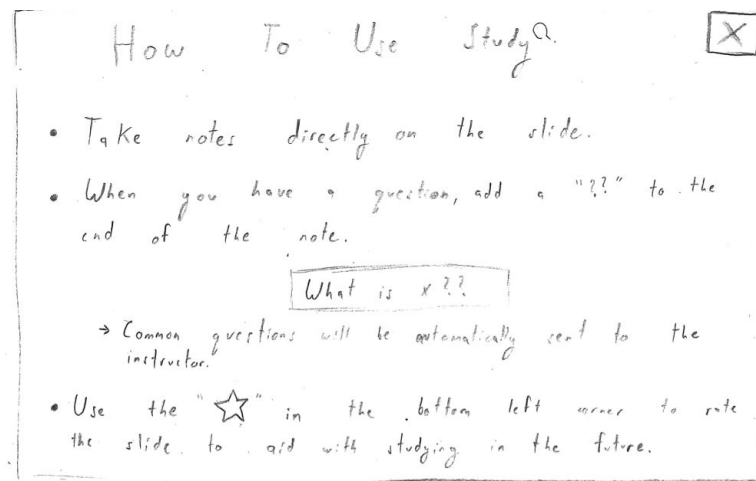 How To Use StudyQ.
X
• Take notes directly on the slide.
• When you have a question, add a "??" to the
end of the note.
What is x??
→ Common questions will be automatically sent to the
instructor.
• Use the "☆" in the bottom left corner to rate
the slide to aid with studying in the future.